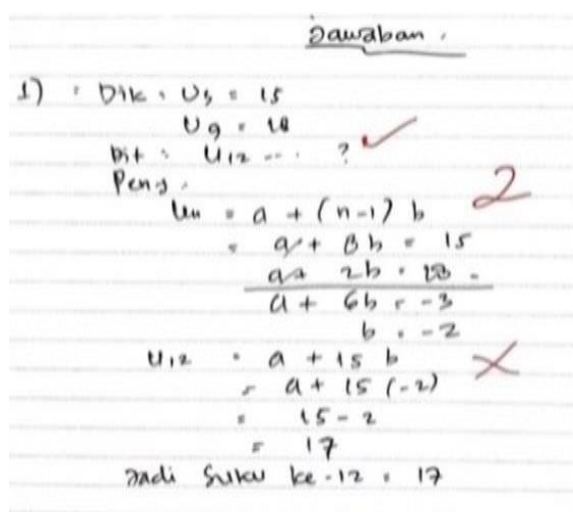 Jawaban.
1) Dik: U3 = 15
U9 = 18
Dit: U12 ... ?
Peny.
Un = a + (n-1) b
2
= a + 8b = 15
a + 2b = 18 -
a + 6b = -3
b = -2
U12 = a + 15 b
= a + 15 (-2)
= 15 - 2
= 17
Jadi Suku ke-12 = 17